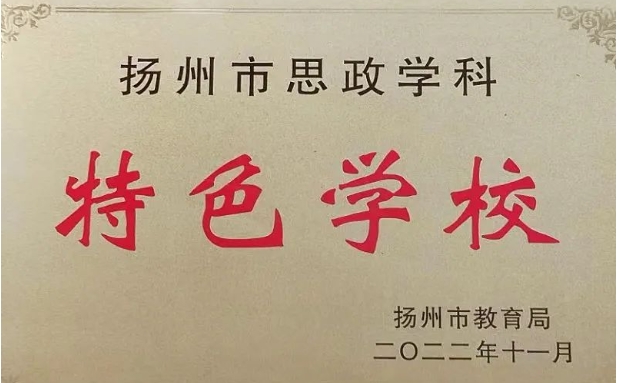 扬州市思政学科
特色学校
扬州市教育局
二〇二二年十一月